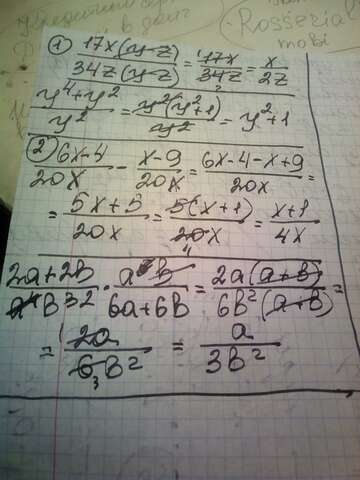 Rosserial
mobi
1) 17x(y-z)/34z(y-z) = 17x/34z = x/2z
y⁴+y²/y² = y²(y²+1)/y² = y²+1
2) 6x-4/20x - x-9/20x = 6x-4-x+9/20x =
= 5x+5/20x = 5(x+1)/20x = x+1/4x
2a+2B/a⁴B³ · a⁵B/6a+6B = 2a(a+B)/6B²(a+B) =
= 2a/6B² = a/3B²